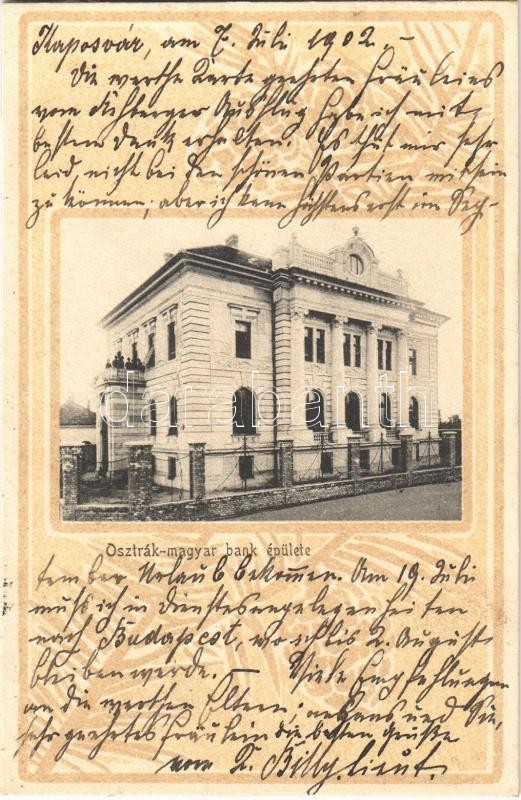 Kaposvár, am 7. Juli 1902. –
Die werthe Karte geehrten Fräuleins
vom Ausflug habe ich mit
bestem Dank erhalten. Es thut mir sehr
leid, nicht bei den schönen Partien mit sein
zu können; aber ich kann höchstens erst im Sep-
darabanth
Osztrák-magyar bank épülete
tember Urlaub bekommen. Am 19. Juli
muß ich in Dienstesangelegenheiten
nach Budapest, wo ich bis 2. August
bleiben werde. – Viele Empfehlungen
an die werthen Eltern; und Sie,
sehr geehrtes Fräulein die besten Grüße
vom